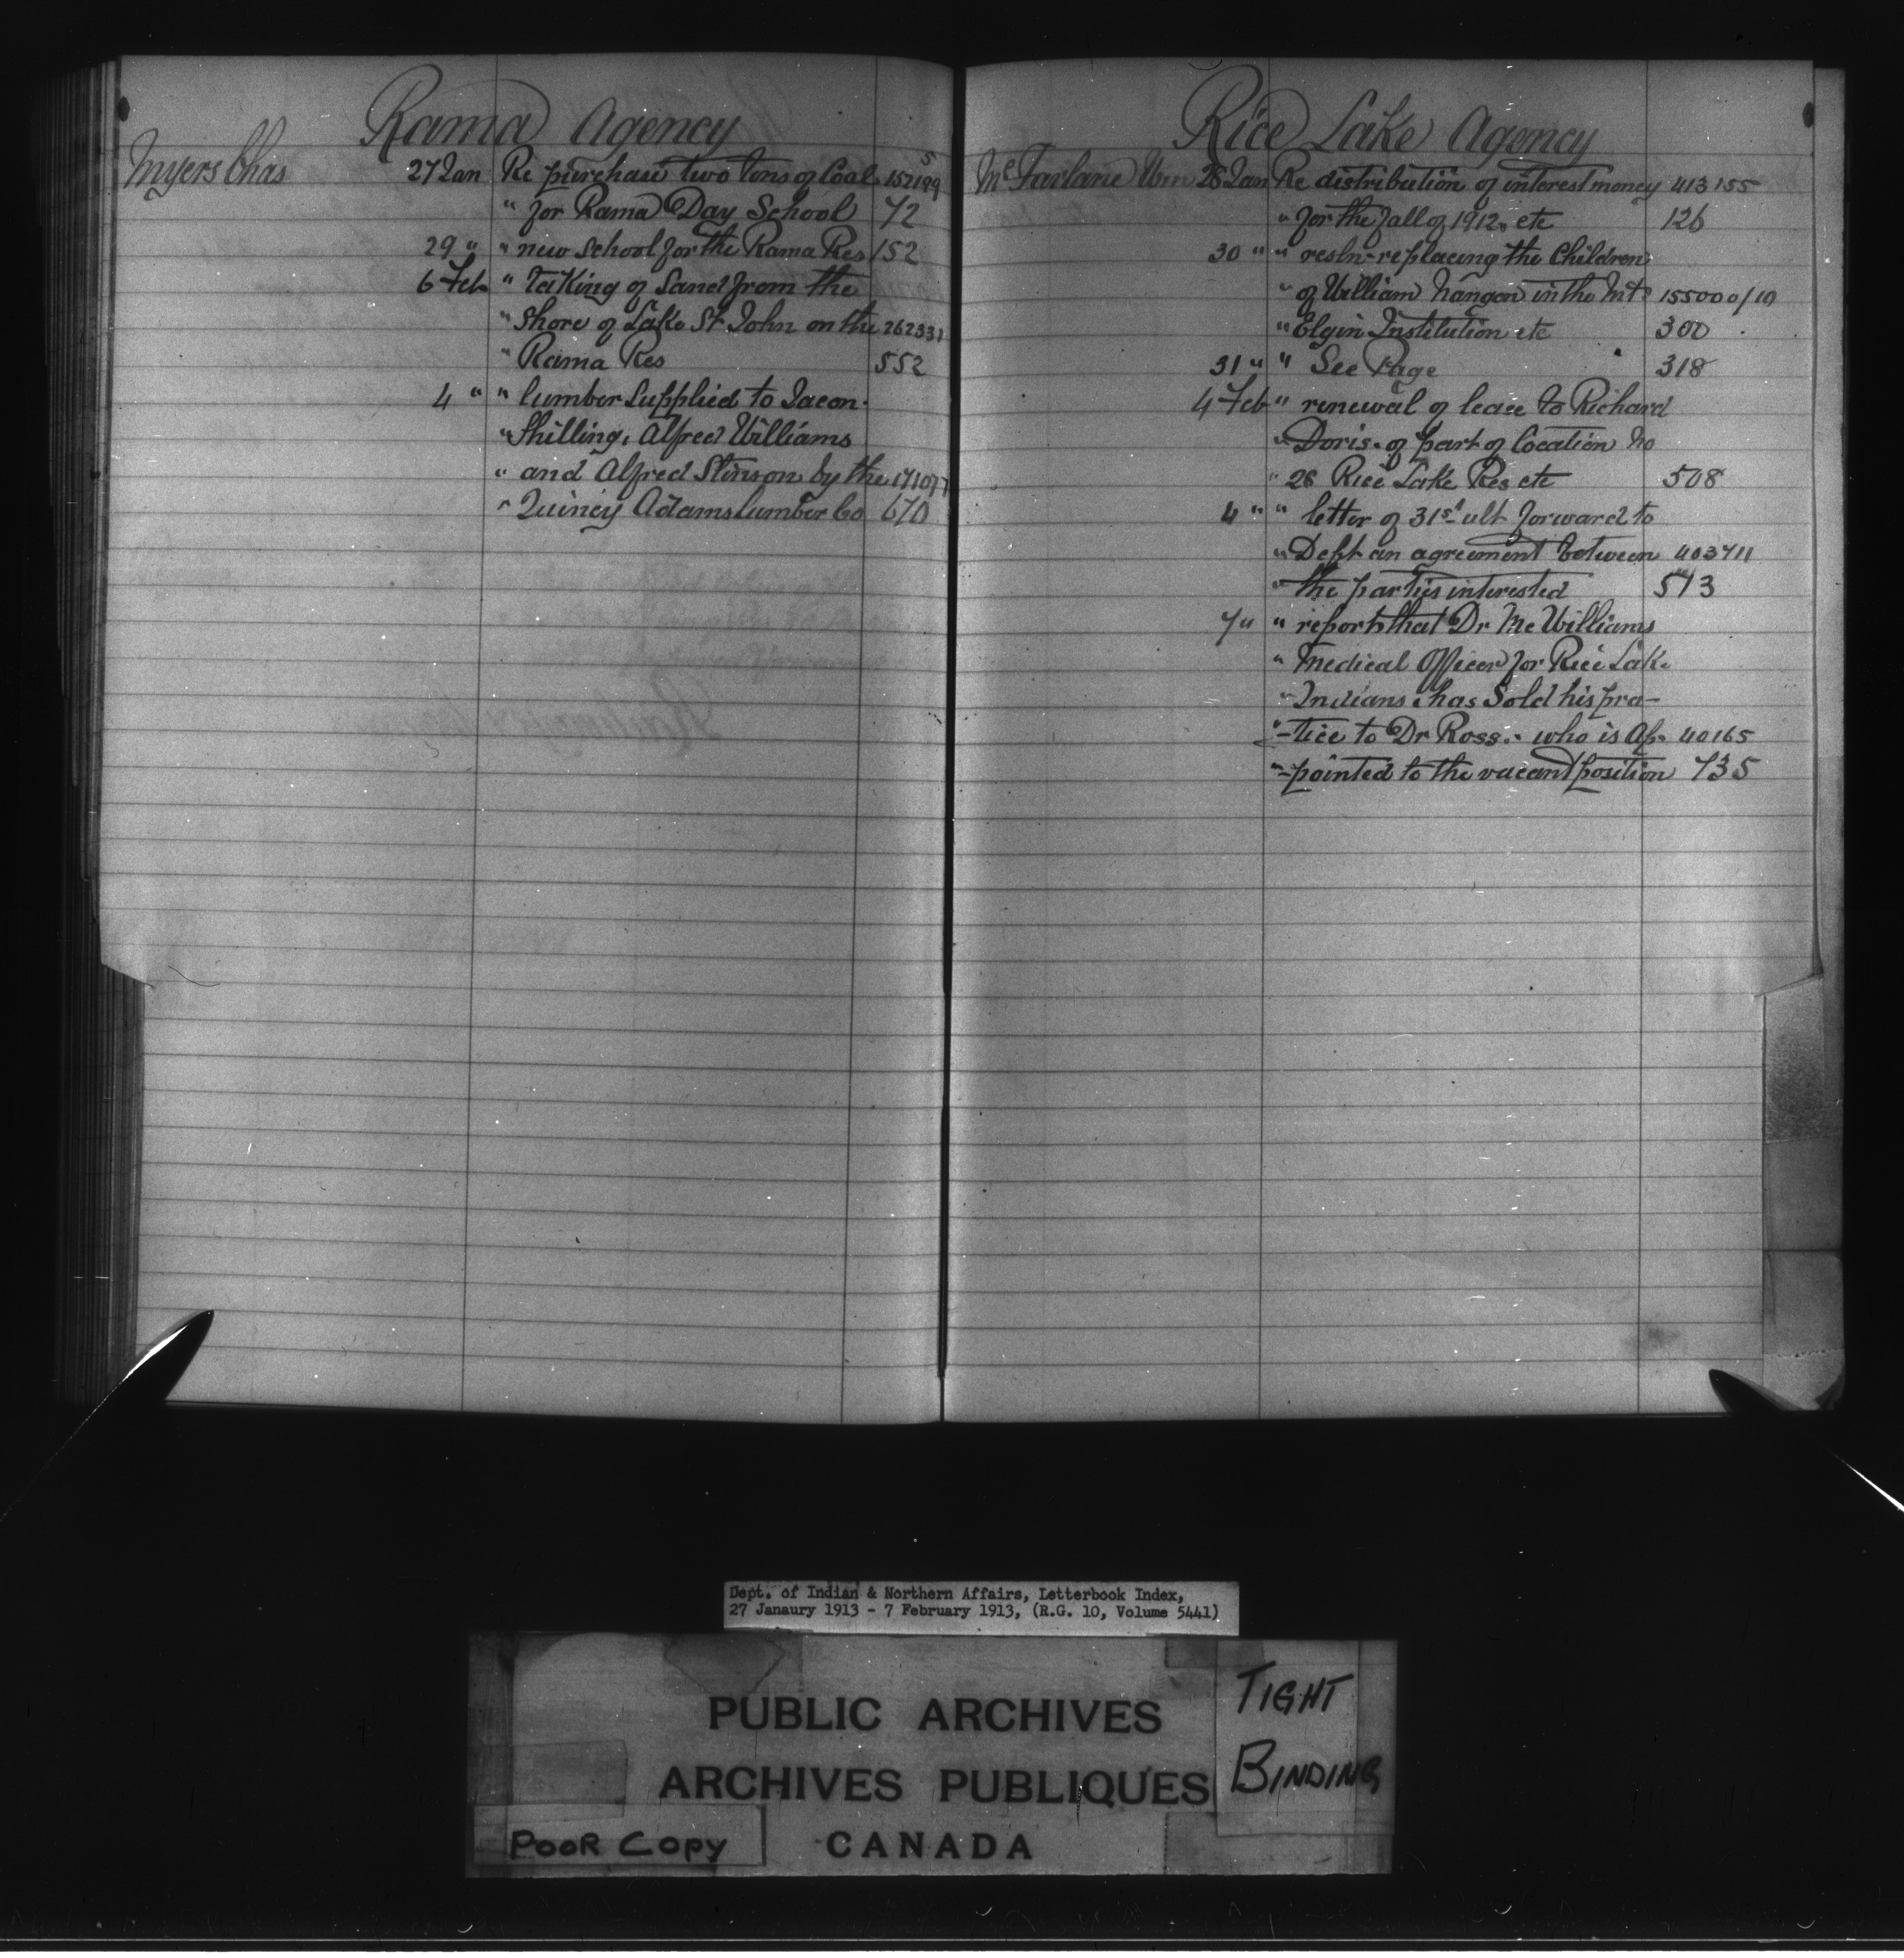 Rama Agency
Myers Chas 27 Jan Re purchase two tons of Coal 152199
" for Rama Day School 72
29 " " new School for the Rama Res 152
6 Feb " Taking of Sand from the
" Shore of Lake St John on the 262331
" Rama Res 552
4 " " lumber Supplied to
" Shilling, Alfred Williams
" and Alfred Stinson by the 171077
" Quincy Adams Lumber Co 670
Rice Lake Agency
McFarlane Wm 28 Jan Re distribution of interest money 413155
" for the fall of 1912. etc 126
30 " " resln- replacing the Children
" of William in the Mt. 155000/10
" Elgin Institution etc 300
31 " " See Page 318
4 Feb " renewal of lease to Richard
" Doris. of part of location No
" 28 Rice Lake Res etc 508
4 " " letter of 31st ult forward to
" Dept an agreement between 403711
" the parties interested 513
7 " " reports that Dr McWilliams
" Medical Officer for Rice Lake
" Indians has Sold his pra-
" -tice to Dr Ross. who is Ap- 40165
" -pointed to the vacant position 735
Dept. of Indian & Northern Affairs, Letterbook Index,
27 Janaury 1913 - 7 February 1913, (R.G. 10, Volume 5441)
PUBLIC ARCHIVES
ARCHIVES PUBLIQUES
CANADA
TIGHT
BINDING
POOR COPY